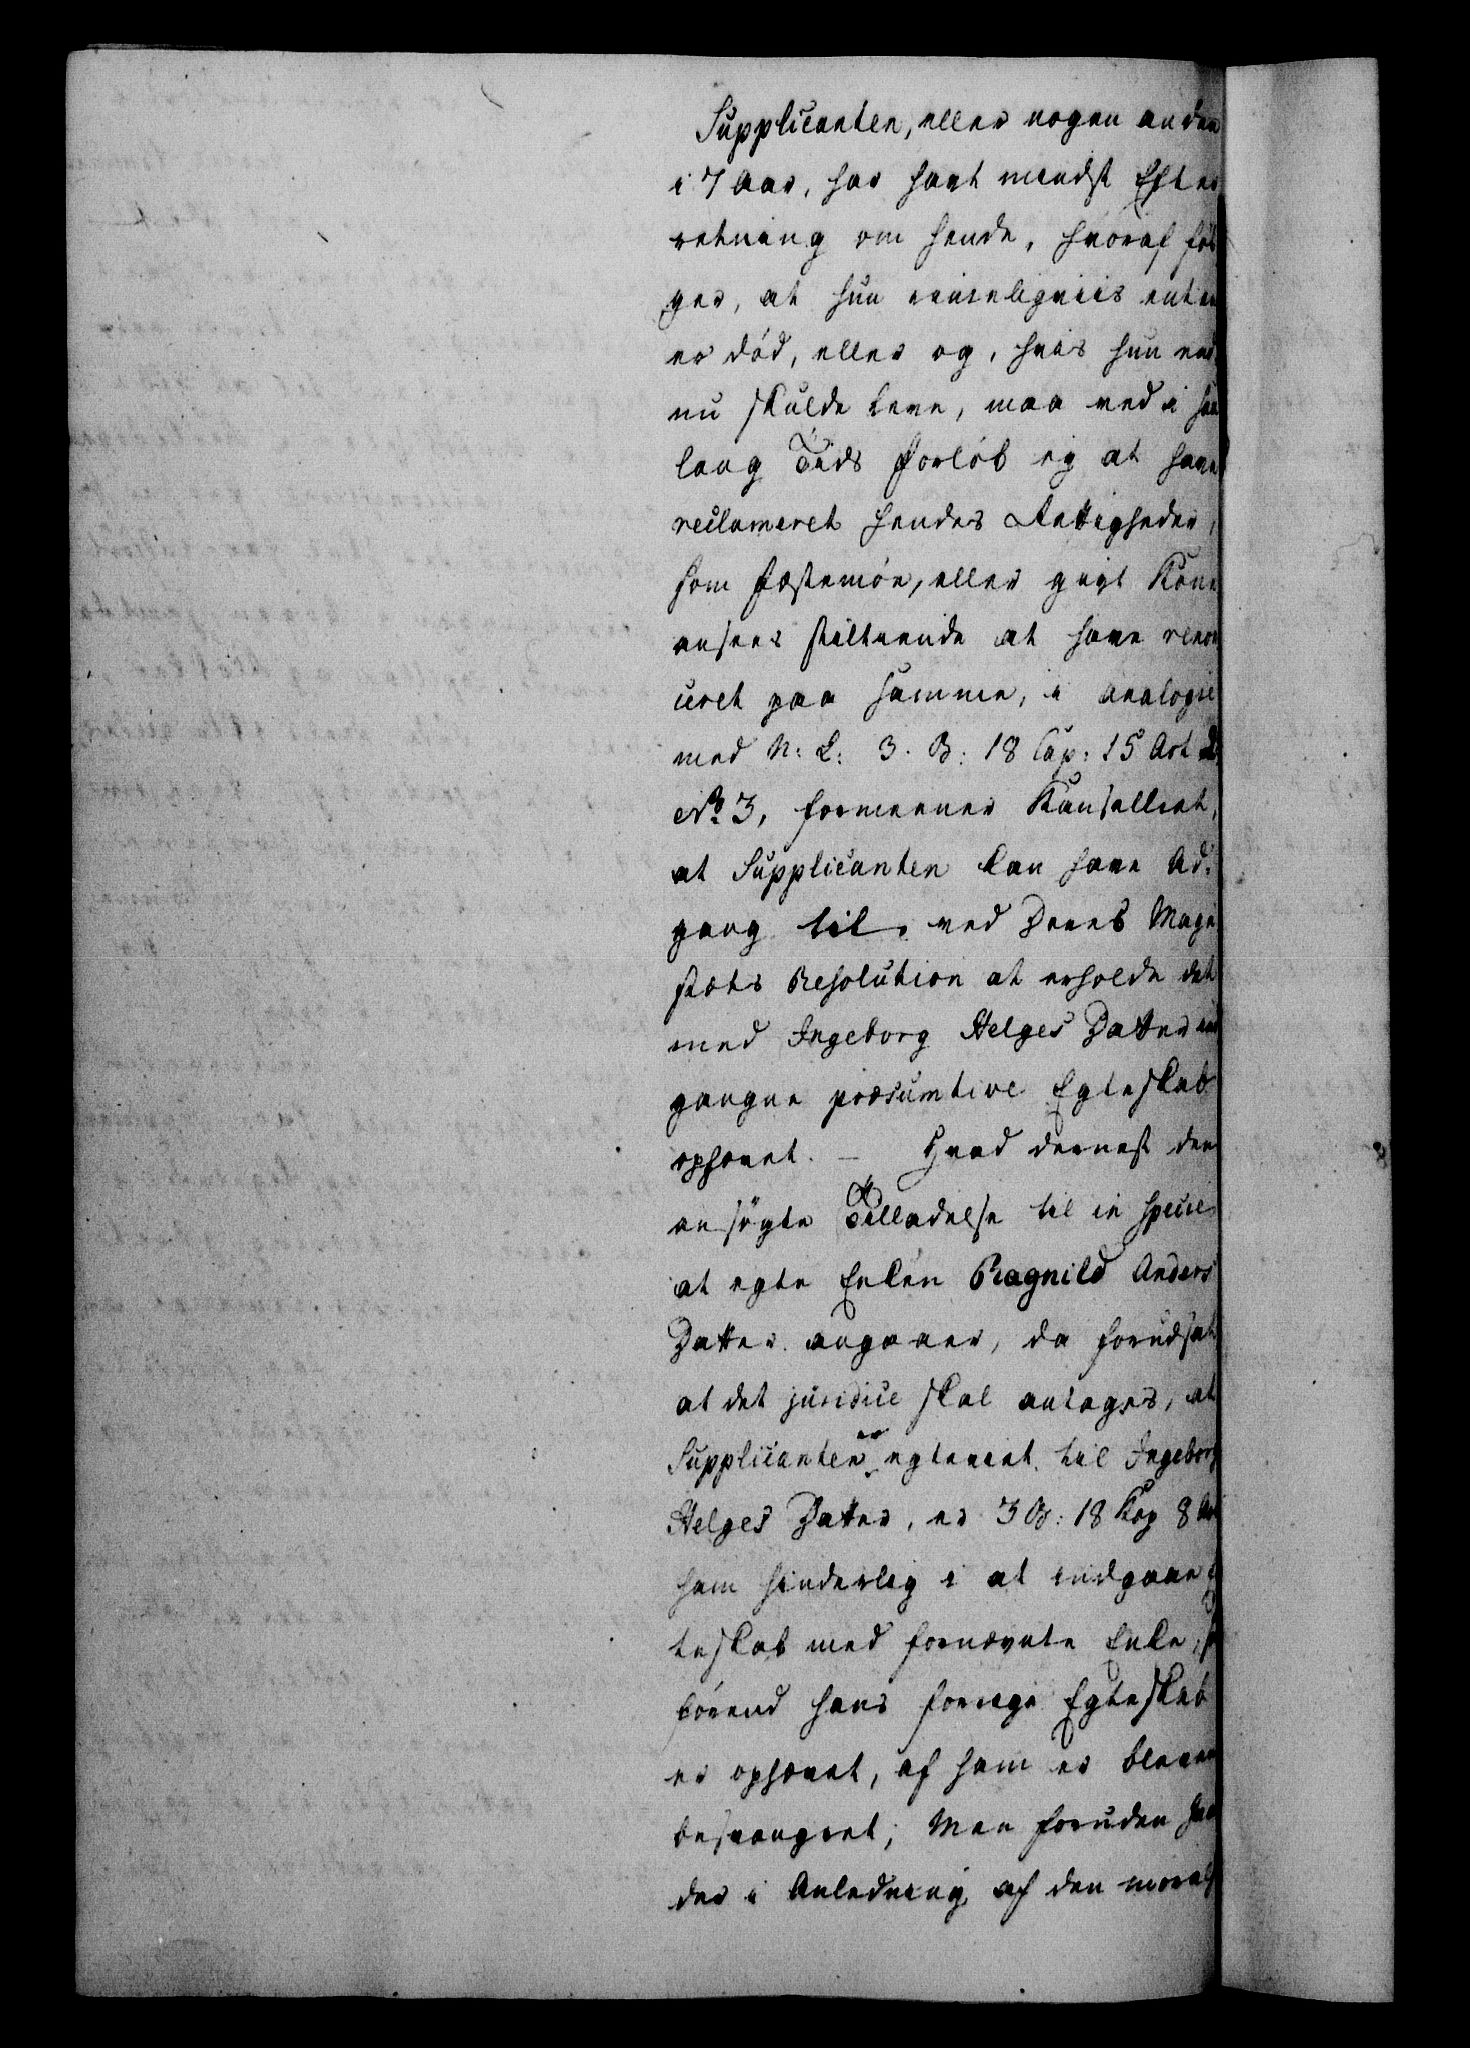 Supplicanten, eller nogen anden
i 7 Aar, har havt mindst Efter
retning om hende, hvoraf föl
ger, at hun rimeligviis enten
er död, eller og, hvis hun end
nu skulde leve, maa ved i saa
lang Tids Forlöb ej at have
reclameret hendes Rettigheder,
som Fæstemöe, eller gift Kone
ansees stiltiende at have renon
ceret paa samme, i analogie
med N: L: 3. B: 18 Cap: 15 Art 2
No 3, formeener Kanselliet,
at Supplicanten kan have Ad:
gang til, ved Deres Maje
stæts Resolution at erholde det
med Ingeborg Helges Datter ind
gangne præsumtive Egteskab
ophævet. – Hvad dernæst den
ansögte Tilladelse til in specie
at egte Enken Ragnild Anders
Datter angaaer, da forudsat
at det juridice skal antages, at
Supplicanten er egteviet til Ingeborg
Helges Datter, er 3 B: 18 Kap 8 Art
ham hinderlig i at indgaae E
teskab med fornævnte Enke,
förend hans forrige Egteskab
er ophævet, af ham er bleven
besvangret; Men foruden
der i Anledning af den morals